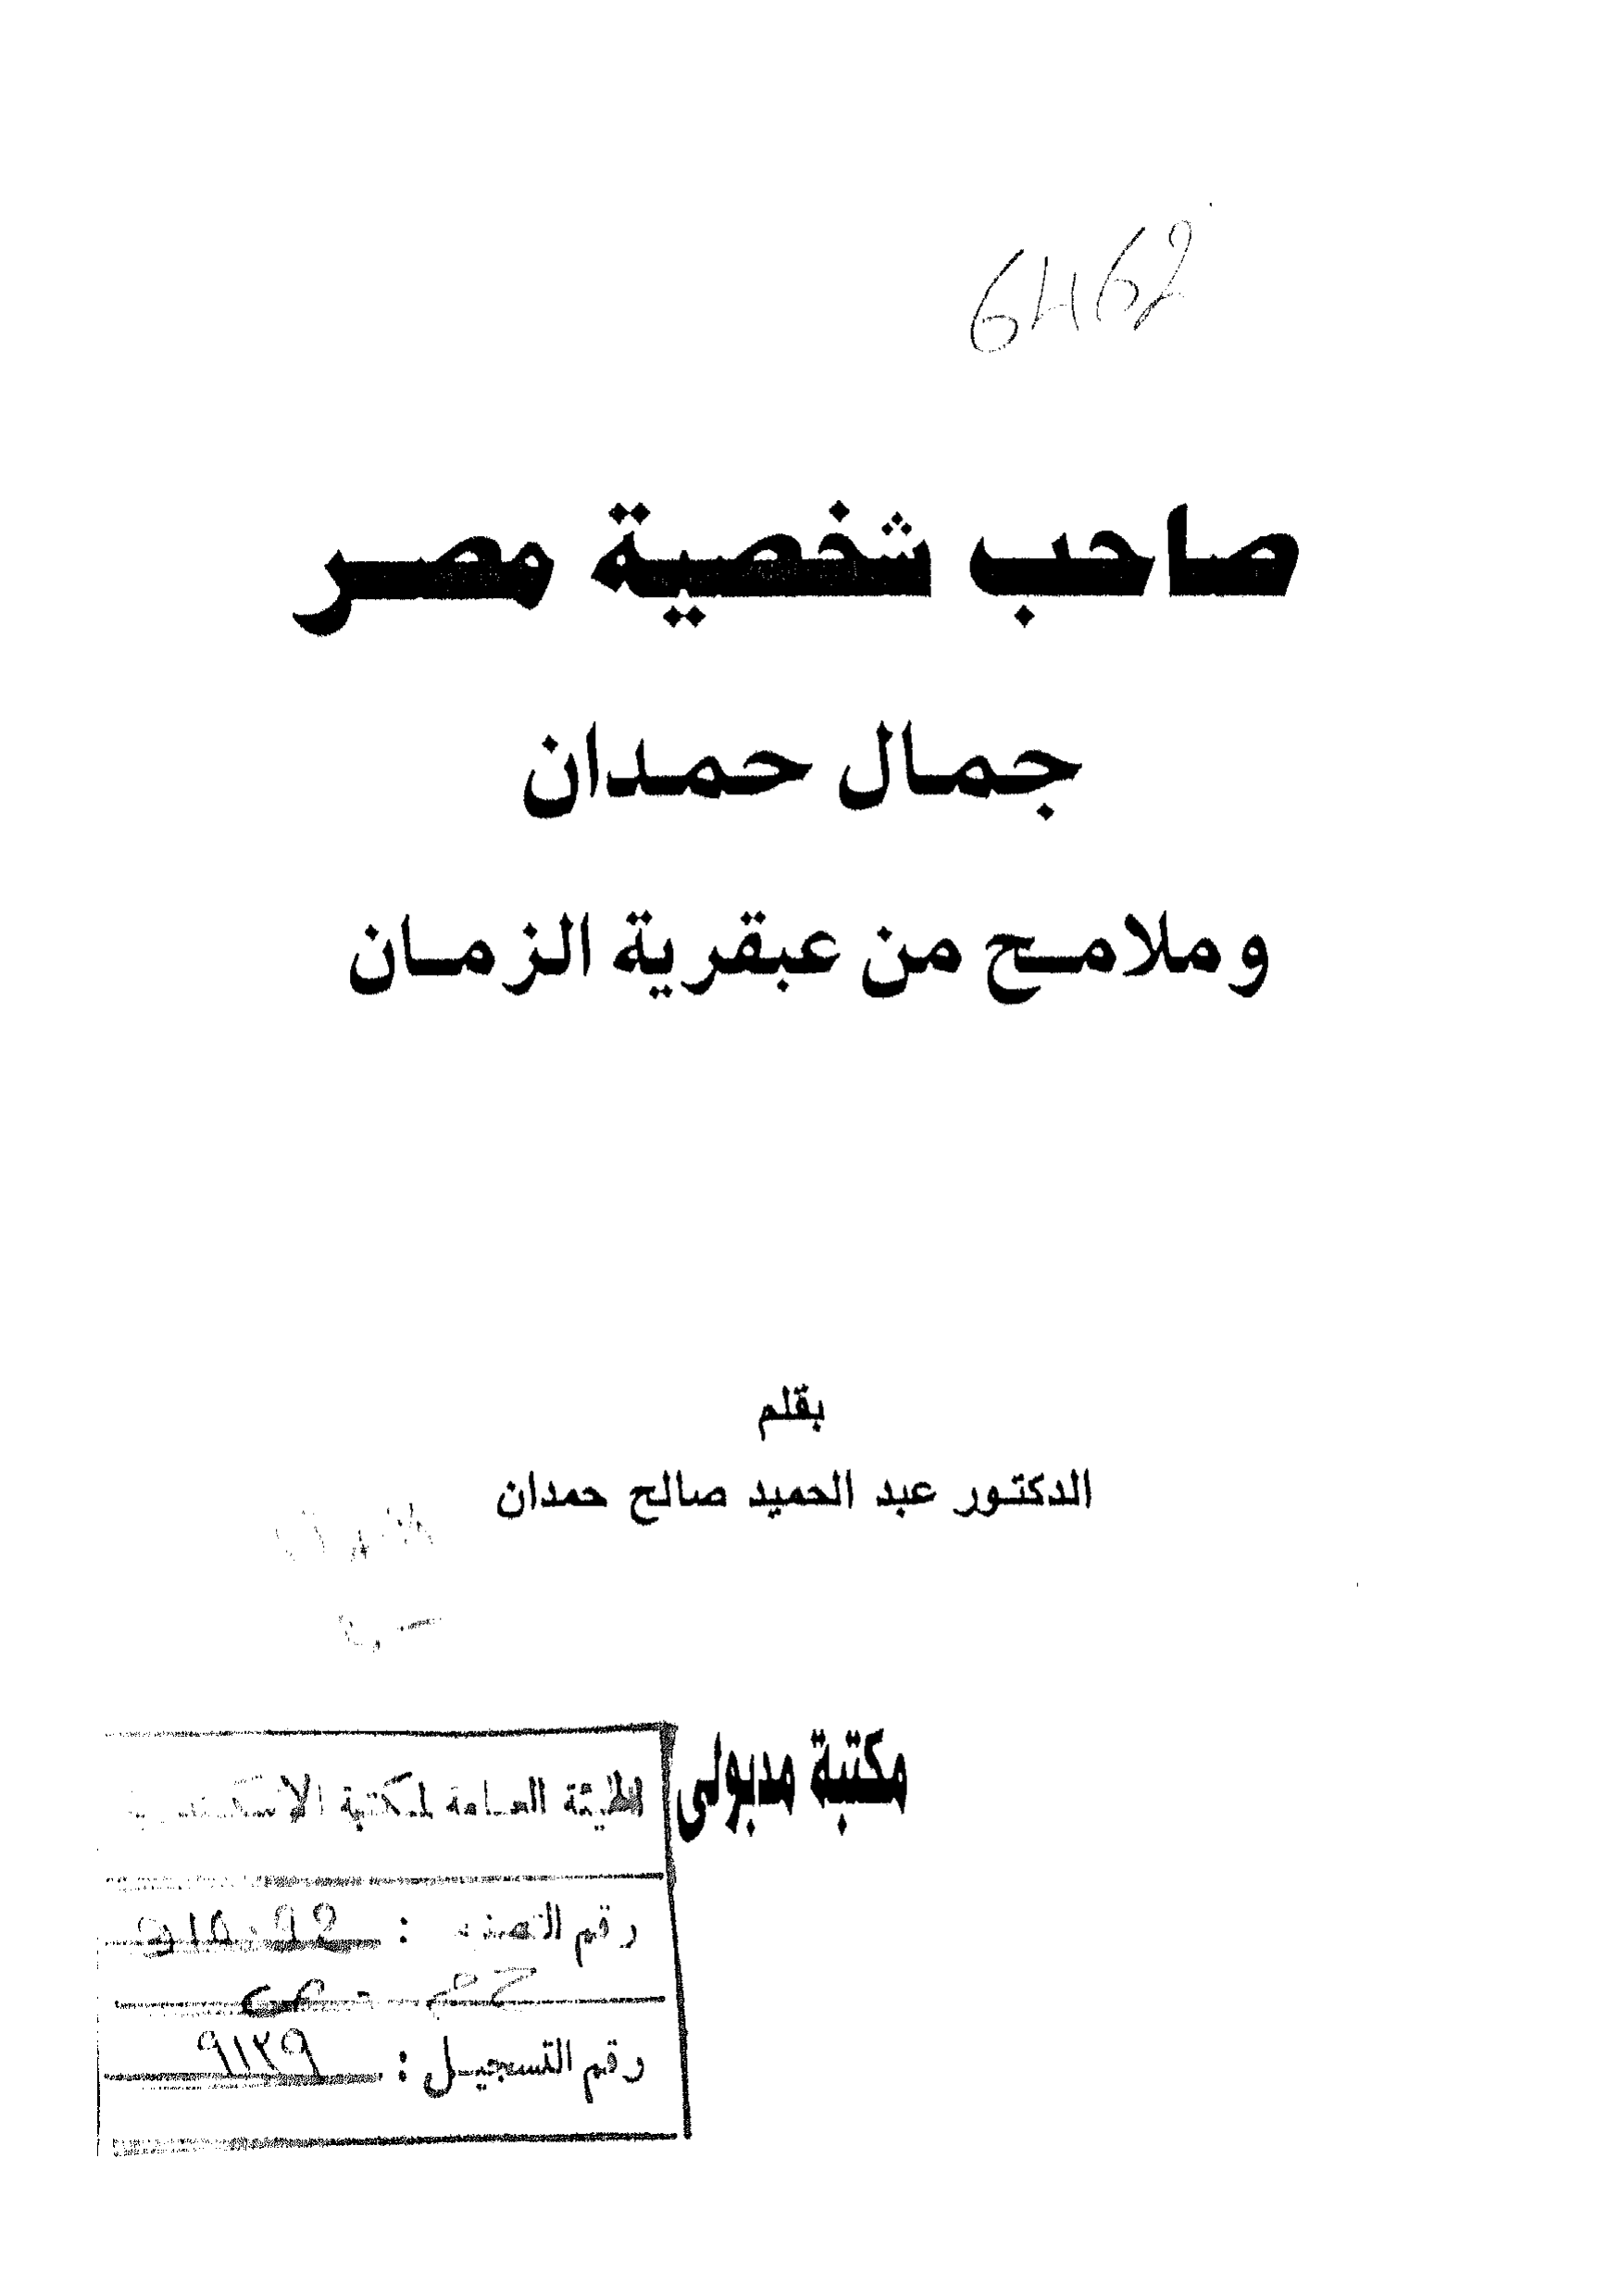 6462
صاحب شخصية مصر
جمال حمدان
وملامح من عبقرية الزمان
بقلم
الدكتور عبد الحميد صالح حمدان
مكتبة مدبولى
الهيئة العامة لمكتبة الاسكندرية
رقم التصنيف :
رقم التسجيل : ٩١٢٩